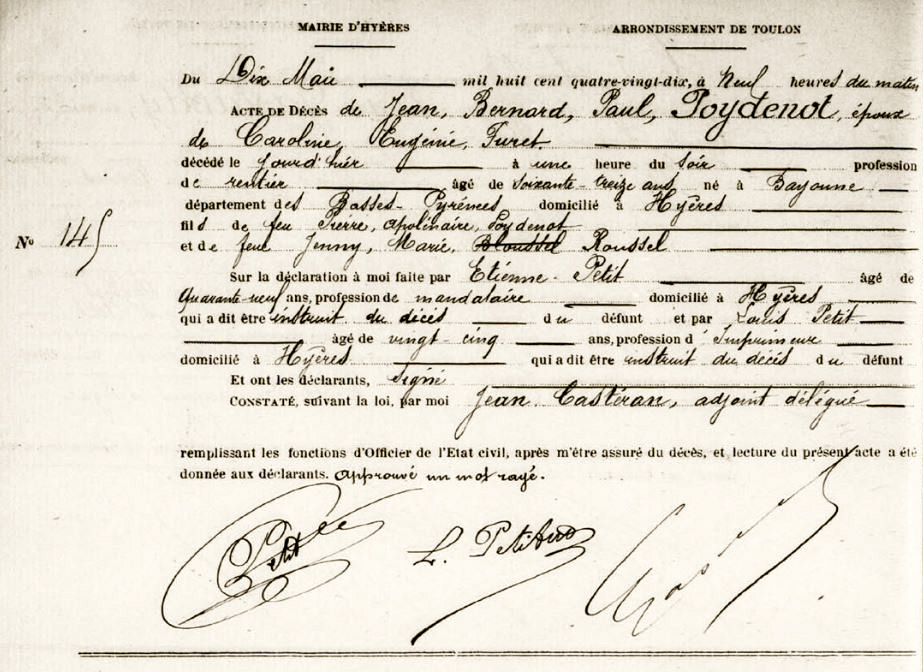 MAIRIE D'HYÈRES ARRONDISSEMENT DE TOULON
Du Dix Mai mil huit cent quatre-vingt-dix, à Neuf heures du matin
ACTE DE DÉCÈS de Jean, Bernard, Paul, Poydenot, époux
de Caroline, Eugénie, Furet
décédé le jourd'hier à une heure du soir profession
de rentier âgé de soixante-treize ans né à Bayonne
département des Basses-Pyrénées domicilié à Hyères
fils de feu Pierre, Apolinaire, Poydenot
Nº 145
et de feue Jenny, Marie, Bloussel Roussel
Sur la déclaration à moi faite par Etienne Petit âgé de
Quarante-neuf ans, profession de mandataire domicilié à Hyères
qui a dit être instruit du décès du défunt et par Louis Petit
âgé de vingt-cinq ans, profession d'Imprimeur
domicilié à Hyères qui a dit être instruit du décès du défunt
Et ont les déclarants, signé
CONSTATÉ, suivant la loi, par moi Jean Castéran, adjoint délégué
remplissant les fonctions d'Officier de l'Etat civil, après m'être assuré du décès, et lecture du présent acte a été
donnée aux déclarants. Approuvé un mot rayé.
Petit L. Petit